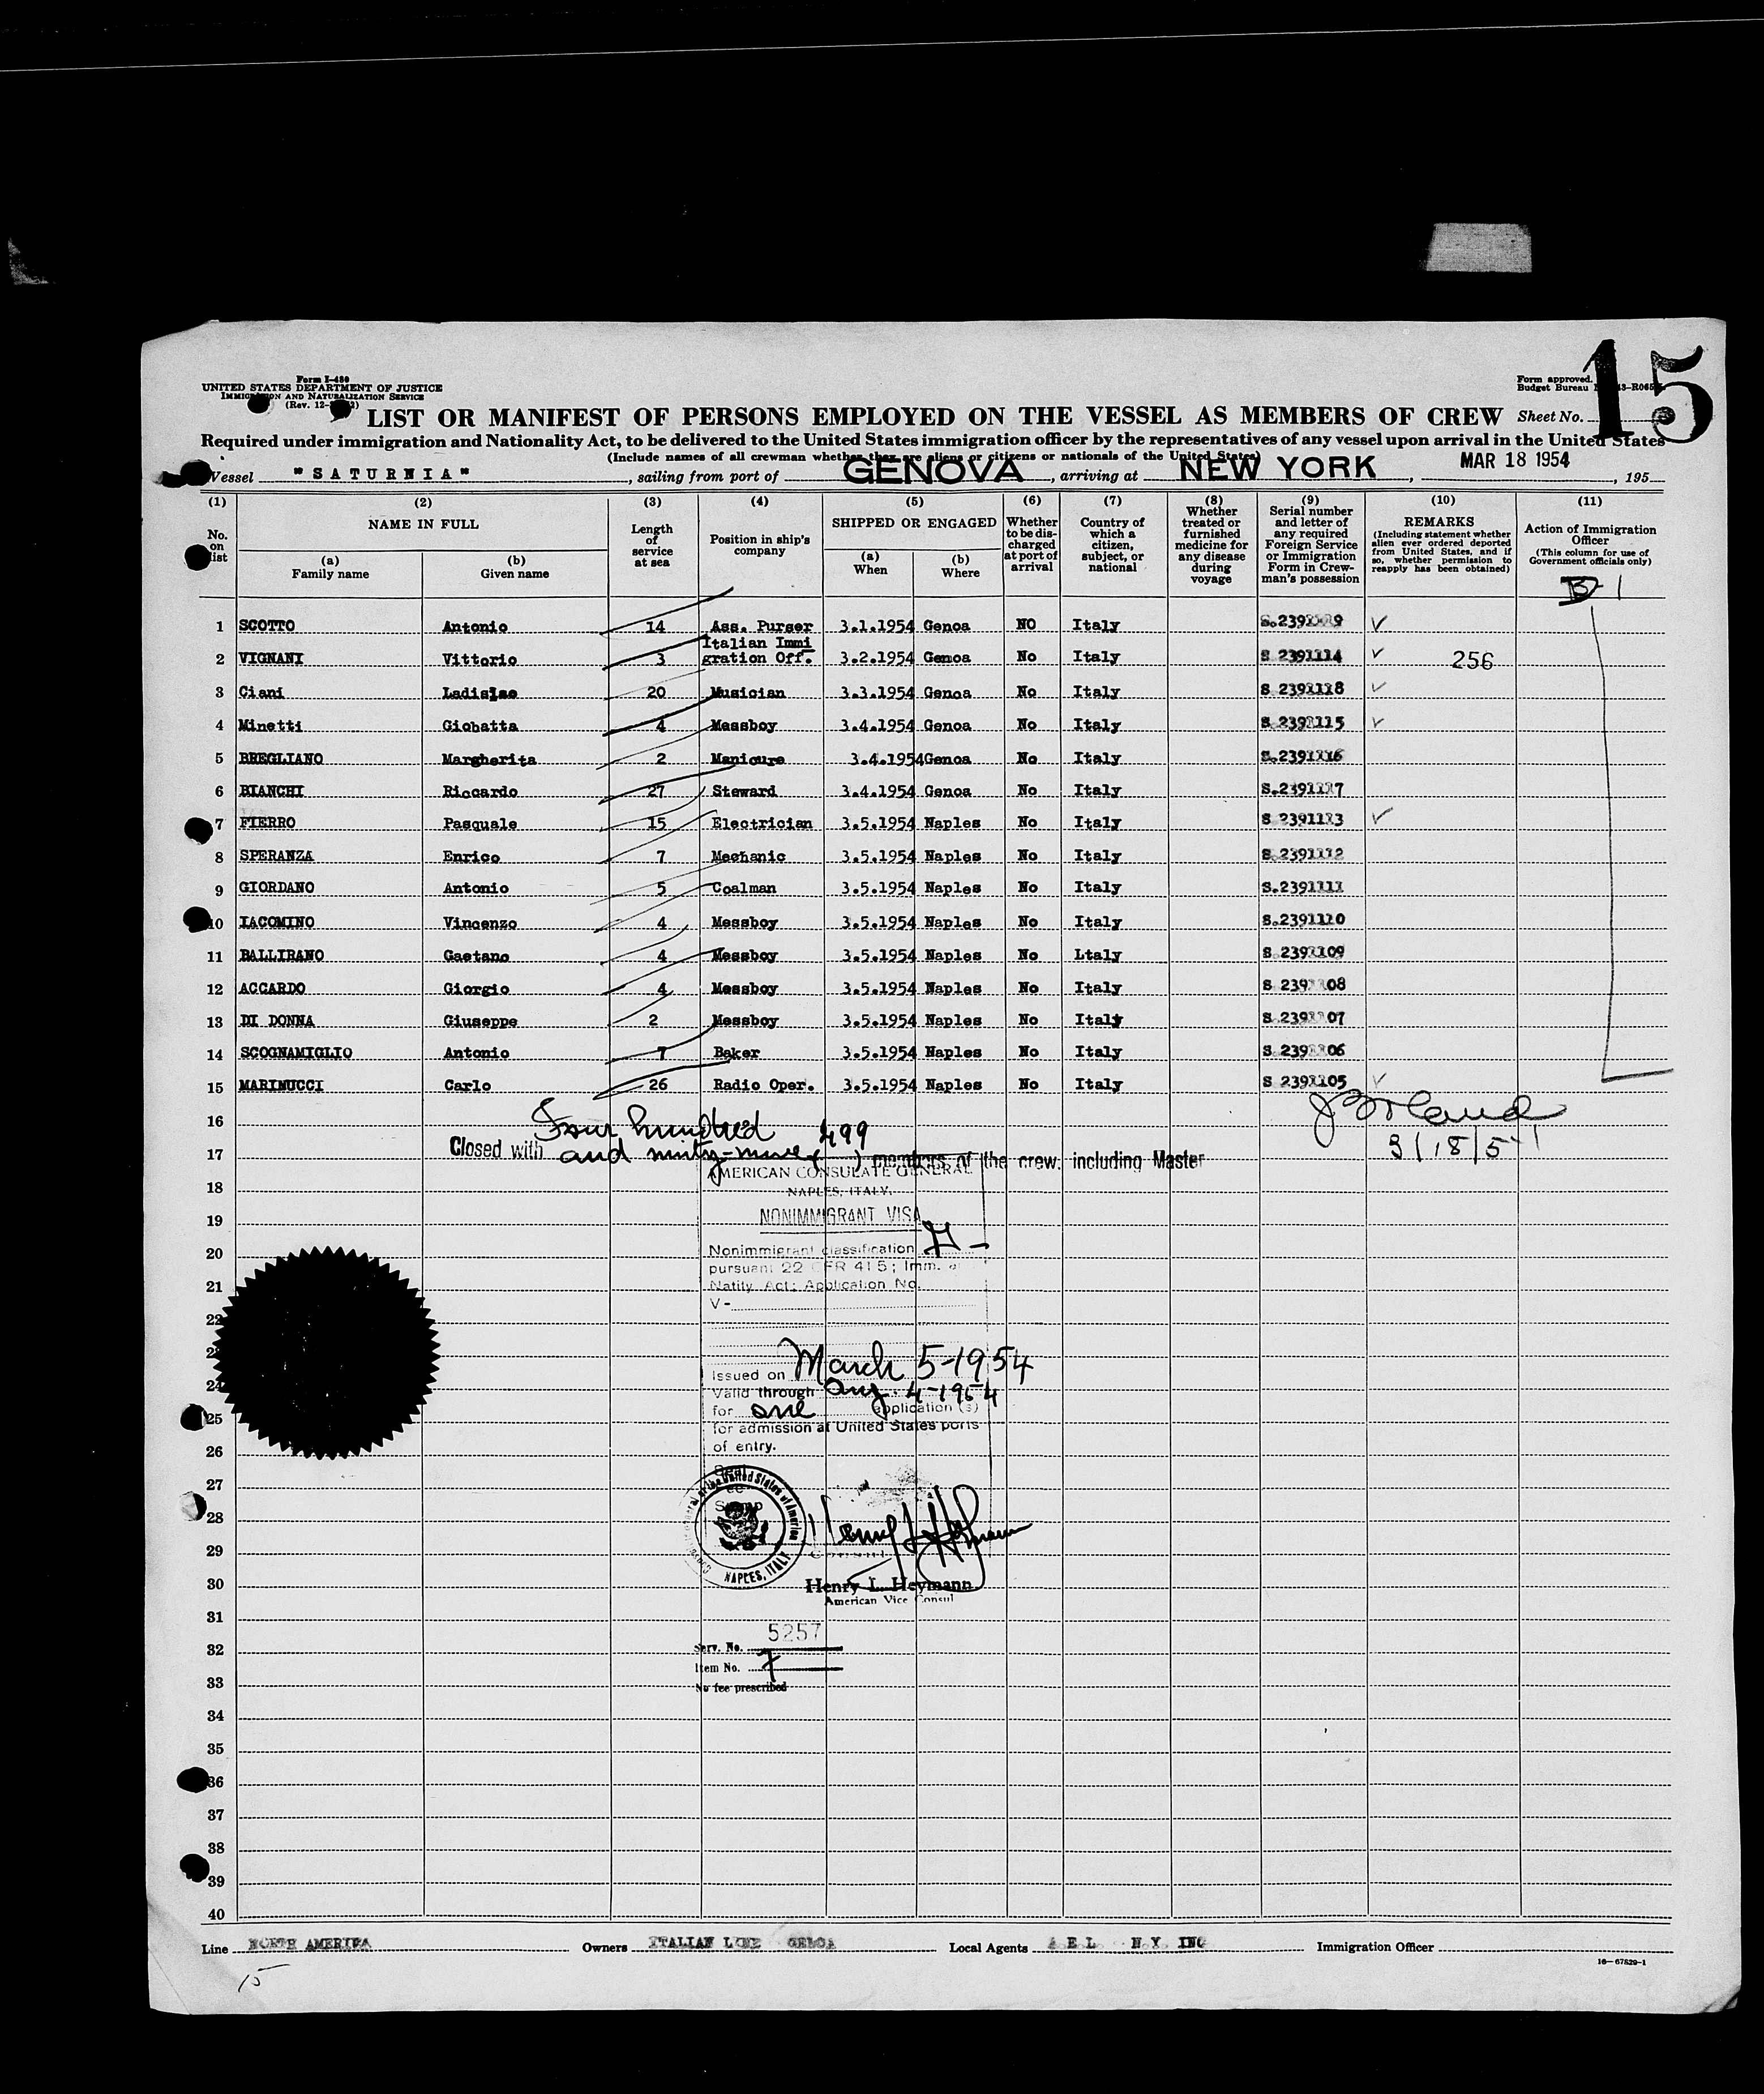 Form I-480
UNITED STATES DEPARTMENT OF JUSTICE
IMMIGRATION AND NATURALIZATION SERVICE
(Rev. 12-
Form approved.
Budget Bureau
15
LIST OR MANIFEST OF PERSONS EMPLOYED ON THE VESSEL AS MEMBERS OF CREW Sheet No.
Required under immigration and Nationality Act, to be delivered to the United States immigration officer by the representatives of any vessel upon arrival in the United States
(Include names of all crewman whether they are aliens or citizens or nationals of the United States)
Vessel "SATURNIA", sailing from port of GENOVA, arriving at NEW YORK, MAR 18 1954, 195
(1) (2) (3) (4) (5) (6) (7) (8) (9) (10) (11)
No. on list
NAME IN FULL
(a) Family name
(b) Given name
Length of service at sea
Position in ship's company
SHIPPED OR ENGAGED
(a) When
(b) Where
Whether to be discharged at port of arrival
Country of which a citizen, subject, or national
Whether treated or furnished medicine for any disease during voyage
Serial number and letter of any required Foreign Service or Immigration Form in Crewman's possession
REMARKS
(Including statement whether alien ever ordered deported from United States, and if so, whether permission to reapply has been obtained)
Action of Immigration Officer
(This column for use of Government officials only)
1 SCOTTO Antonio 14 Ass. Purser 3.1.1954 Genoa NO Italy ✓
2 VIGNANI Vittorio 3 Italian Immi gration Off. 3.2.1954 Genoa No Italy S 2391114 ✓ 256
3 Ciani Ladislao 20 Musician 3.3.1954 Genoa No Italy S 2391118 ✓
4 Minetti Giobatta 4 Messboy 3.4.1954 Genoa No Italy S 2391115 ✓
5 BREGLIANO Margherita 2 Manicure 3.4.1954 Genoa No Italy S.2391116
6 BIANCHI Riccardo 27 Steward 3.4.1954 Genoa No Italy S.2391117
7 FIERRO Pasquale 15 Electrician 3.5.1954 Naples No Italy S 2391113 ✓
8 SPERANZA Enrico 7 Mechanic 3.5.1954 Naples No Italy S 2391112
9 GIORDANO Antonio 5 Coalman 3.5.1954 Naples No Italy S.2391111
10 IACOMINO Vincenzo 4 Messboy 3.5.1954 Naples No Italy S.2391110
11 BALLIRANO Gaetano 4 Messboy 3.5.1954 Naples No Ltaly S 2391109
12 ACCARDO Giorgio 4 Messboy 3.5.1954 Naples No Italy S 2391108
13 DI DONNA Giuseppe 2 Messboy 3.5.1954 Naples No Italy S 2391107
14 SCOGNAMIGLIO Antonio 7 Baker 3.5.1954 Naples No Italy S 2391106
15 MARINUCCI Carlo 26 Radio Oper. 3.5.1954 Naples No Italy S 2391105 ✓
16 Four hundred
17 Closed with and ninty-nine (499) members of the crew, including Master
3/18/54
AMERICAN CONSULATE GENERAL
18 NAPLES, ITALY.
19 NONIMMIGRANT VISA
20 Nonimmigrant classification
pursuant 22 CFR 41.5; Imm.
21 Natlty. Act; Application No.
V-
22
23
Issued on March 5-1954
24 Valid through Aug. 4-1954
25 for one application (s)
for admission at United States ports
26 of entry.
27 Seal
28
NAPLES, ITALY
29 Consul
30 Henry L. Heymann
American Vice Consul
31
5257
32 Serv. No.
Item No. 7
33 No fee prescribed
34
35
36
37
38
39
40
Line NORTH AMERICA Owners ITALIAN LINE GENOA Local Agents A E L N.Y. INC Immigration Officer
16-67829-1
15